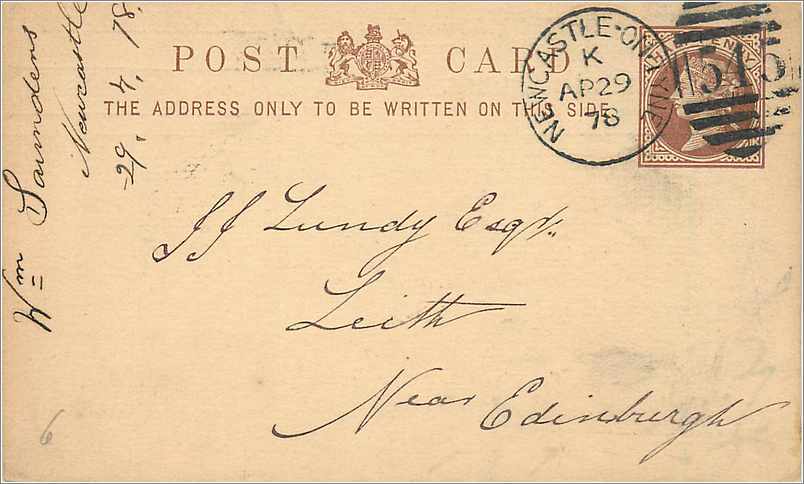 POST CARD
THE ADDRESS ONLY TO BE WRITTEN ON THIS SIDE
NEWCASTLE-ON-TYNE
K
AP 29
78
545
PENNY
JJ Lundy Esqr.
Leith
Near Edinburgh
Wm Saunders
Newcastle
29. 4. 78.
6